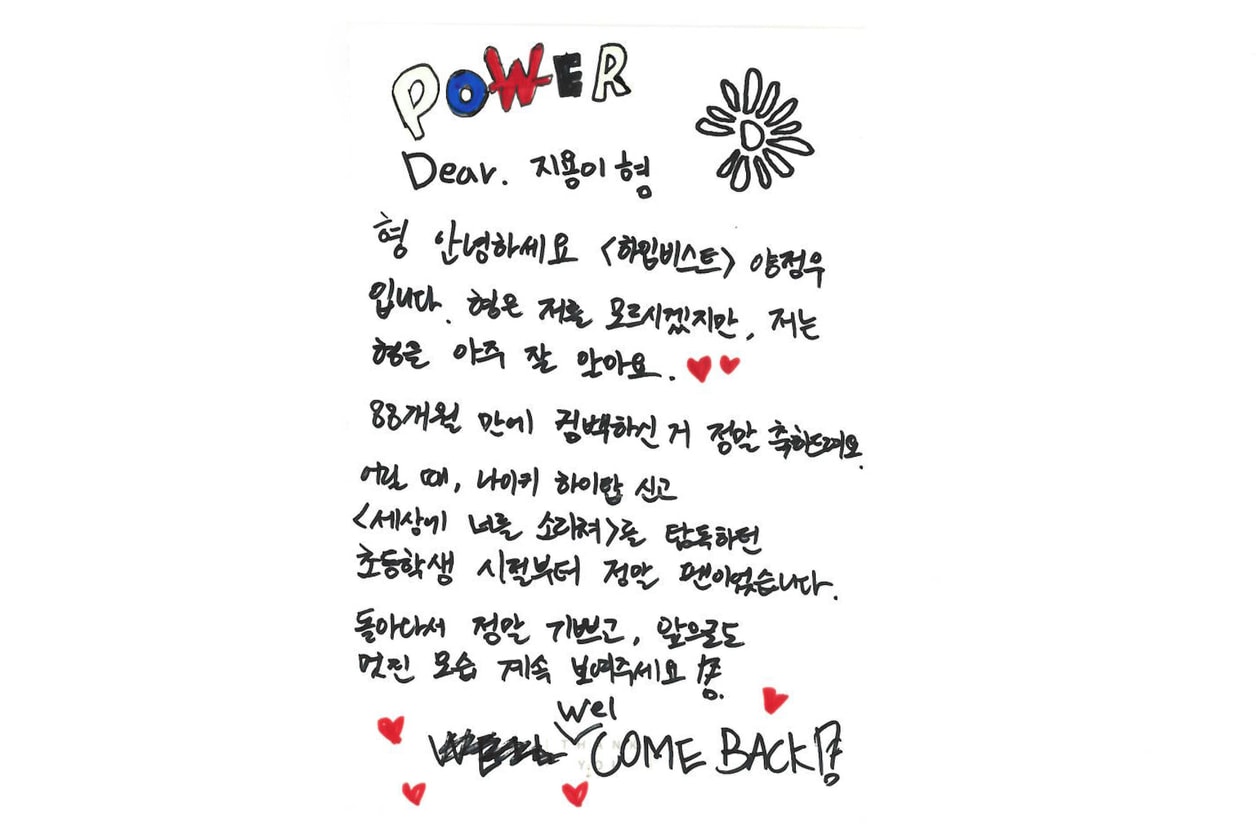 POWER
D
Dear. 지용이 형
형 안녕하세요 <하입비스트> 양정우
입니다. 형은 저를 모르시겠지만, 저는
형을 아주 잘 알아요.
88개월 만에 컴백하신 거 정말 축하드려요.
어릴 때, 나이키 하이탑 신고
<세상에 너를 소리쳐>를 탐독하던
초등학생 시절부터 정말 팬이었습니다.
돌아와서 정말 기쁘고, 앞으로도
멋진 모습 계속 보여주세요!
Wel
COME BACK!
THANK
YOU